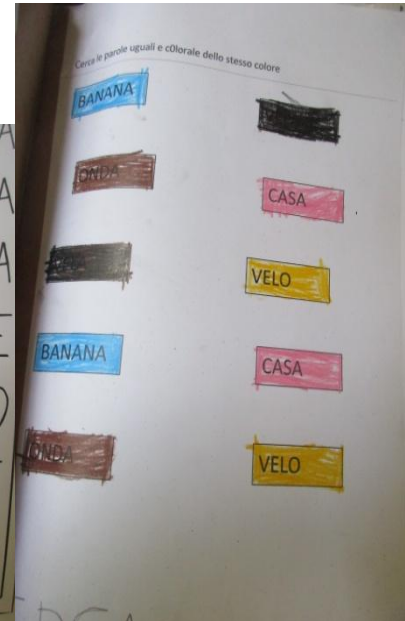 Cerca le parole uguali e c0lorale dello stesso colore
BANANA
ONDA
CASA
VELO
BANANA
CASA
ONDA
VELO